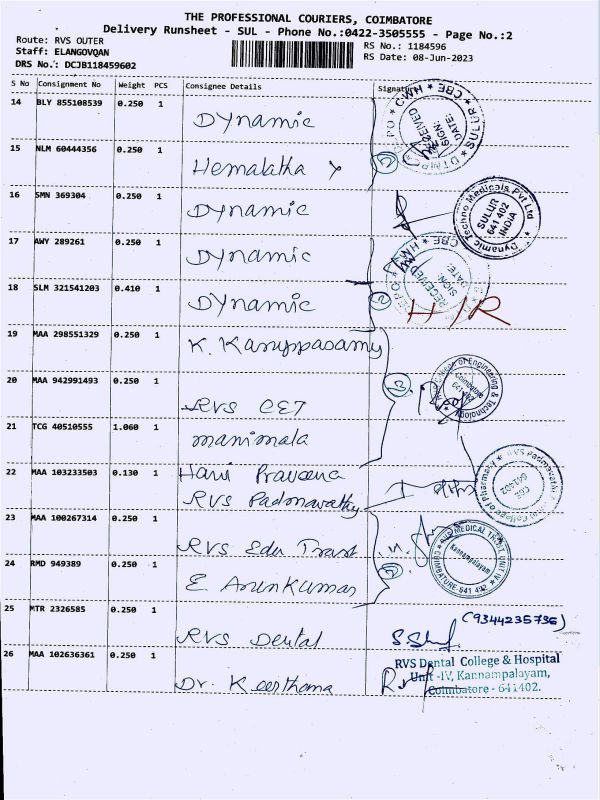 THE PROFESSIONAL COURIERS, COIMBATORE
Delivery Runsheet - SUL - Phone No.:0422-3505555 - Page No.:2
Route: RVS OUTER
RS No.: 1184596
Staff: ELANGOVQAN
RS Date: 08-Jun-2023
DRS No.: DCJB118459602
S No Consignment No Weight PCS Consignee Details Signature
14 BLY 855108539 0.250 1
Dynamic
15 NLM 60444356 0.250 1
Hemalatha
16 SMN 369304 0.250 1
Dynamic
17 AWY 289261 0.250 1
Dynamic
18 SLM 321541203 0.410 1
Dynamic
19 MAA 298551329 0.250 1
K. Karuppasamy
20 MAA 942991493 0.250 1
RVS CET
21 TCG 40510555 1.060 1
manimala
22 MAA 103233503 0.130 1
Hari Praveena
RVS Padmavathy
23 MAA 100267314 0.250 1
RVS Edu Trust
24 RMD 949389 0.250 1
E. Arunkumar
25 MTR 2326585 0.250 1
RVS Dental
(9344235736)
26 MAA 102636361 0.250 1
Dr. Keerthama
CWH * CBE
SULUR
RECEIVED
SIGN:
DATE:
Dynamic Techno Medicals Pvt Ltd
SULUR
641 402
INDIA
CWH * CBE
RECEIVED
SIGN:
DATE:
H/R
College of Engineering & Technology
Coimbatore
641402
RVS Padmavathi
College of Pharmacy
CBE
641402
MEDICAL TRUST, UNIT IV
Kannampalayam
COIMBATORE 641 402
RVS Dental College & Hospital
Unit -IV, Kannampalayam,
Coimbatore - 641402.